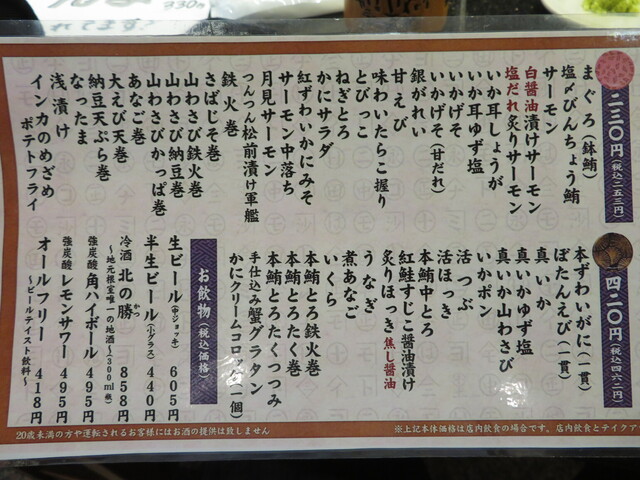 330円
二三〇円(税込二五三円)
まぐろ(鉢鮪)
塩〆びんちょう鮪
サーモン
白醤油漬けサーモン
塩だれ炙りサーモン
いか耳しょうが
いか耳ゆず塩
いかげそ
いかげそ(甘だれ)
銀がれい
甘えび
味わいたらこ握り
とびっこ
ねぎとろ
かにサラダ
紅ずわいかにみそ
サーモン中落ち
月見サーモン
つんつん松前漬け軍艦
鉄火巻
さばじそ巻
山わさび鉄火巻
山わさび納豆巻
山わさびかっぱ巻
あなご巻
大えび天巻
納豆天ぷら巻
なったま
浅漬け
インカのめざめ
ポテトフライ
四二〇円(税込四六二円)
本ずわいがに(一貫)
ぼたんえび(一貫)
真いか
真いかゆず塩
真いか山わさび
いかポン
活つぶ
活ほっき
本鮪中とろ
紅鮭すじこ醤油漬け
炙りほっき焦し醤油
うなぎ
煮あなご
いくら
本鮪とろ鉄火巻
本鮪とろたく巻
本鮪とろたくつつみ
手仕込み蟹グラタン
かにクリームコロッケ(一個)
お飲物(税込価格)
生ビール(中ジョッキ) 605円
半生ビール(小グラス) 440円
冷酒 北の勝 かつ 858円
~地元根室唯一の地酒~(300ml瓶)
強炭酸 角ハイボール 495円
強炭酸 レモンサワー 495円
オールフリー 418円
~ビールテイスト飲料~
20歳未満の方や運転されるお客様にはお酒の提供は致しません
※上記本体価格は店内飲食の場合です。店内飲食とテイクア